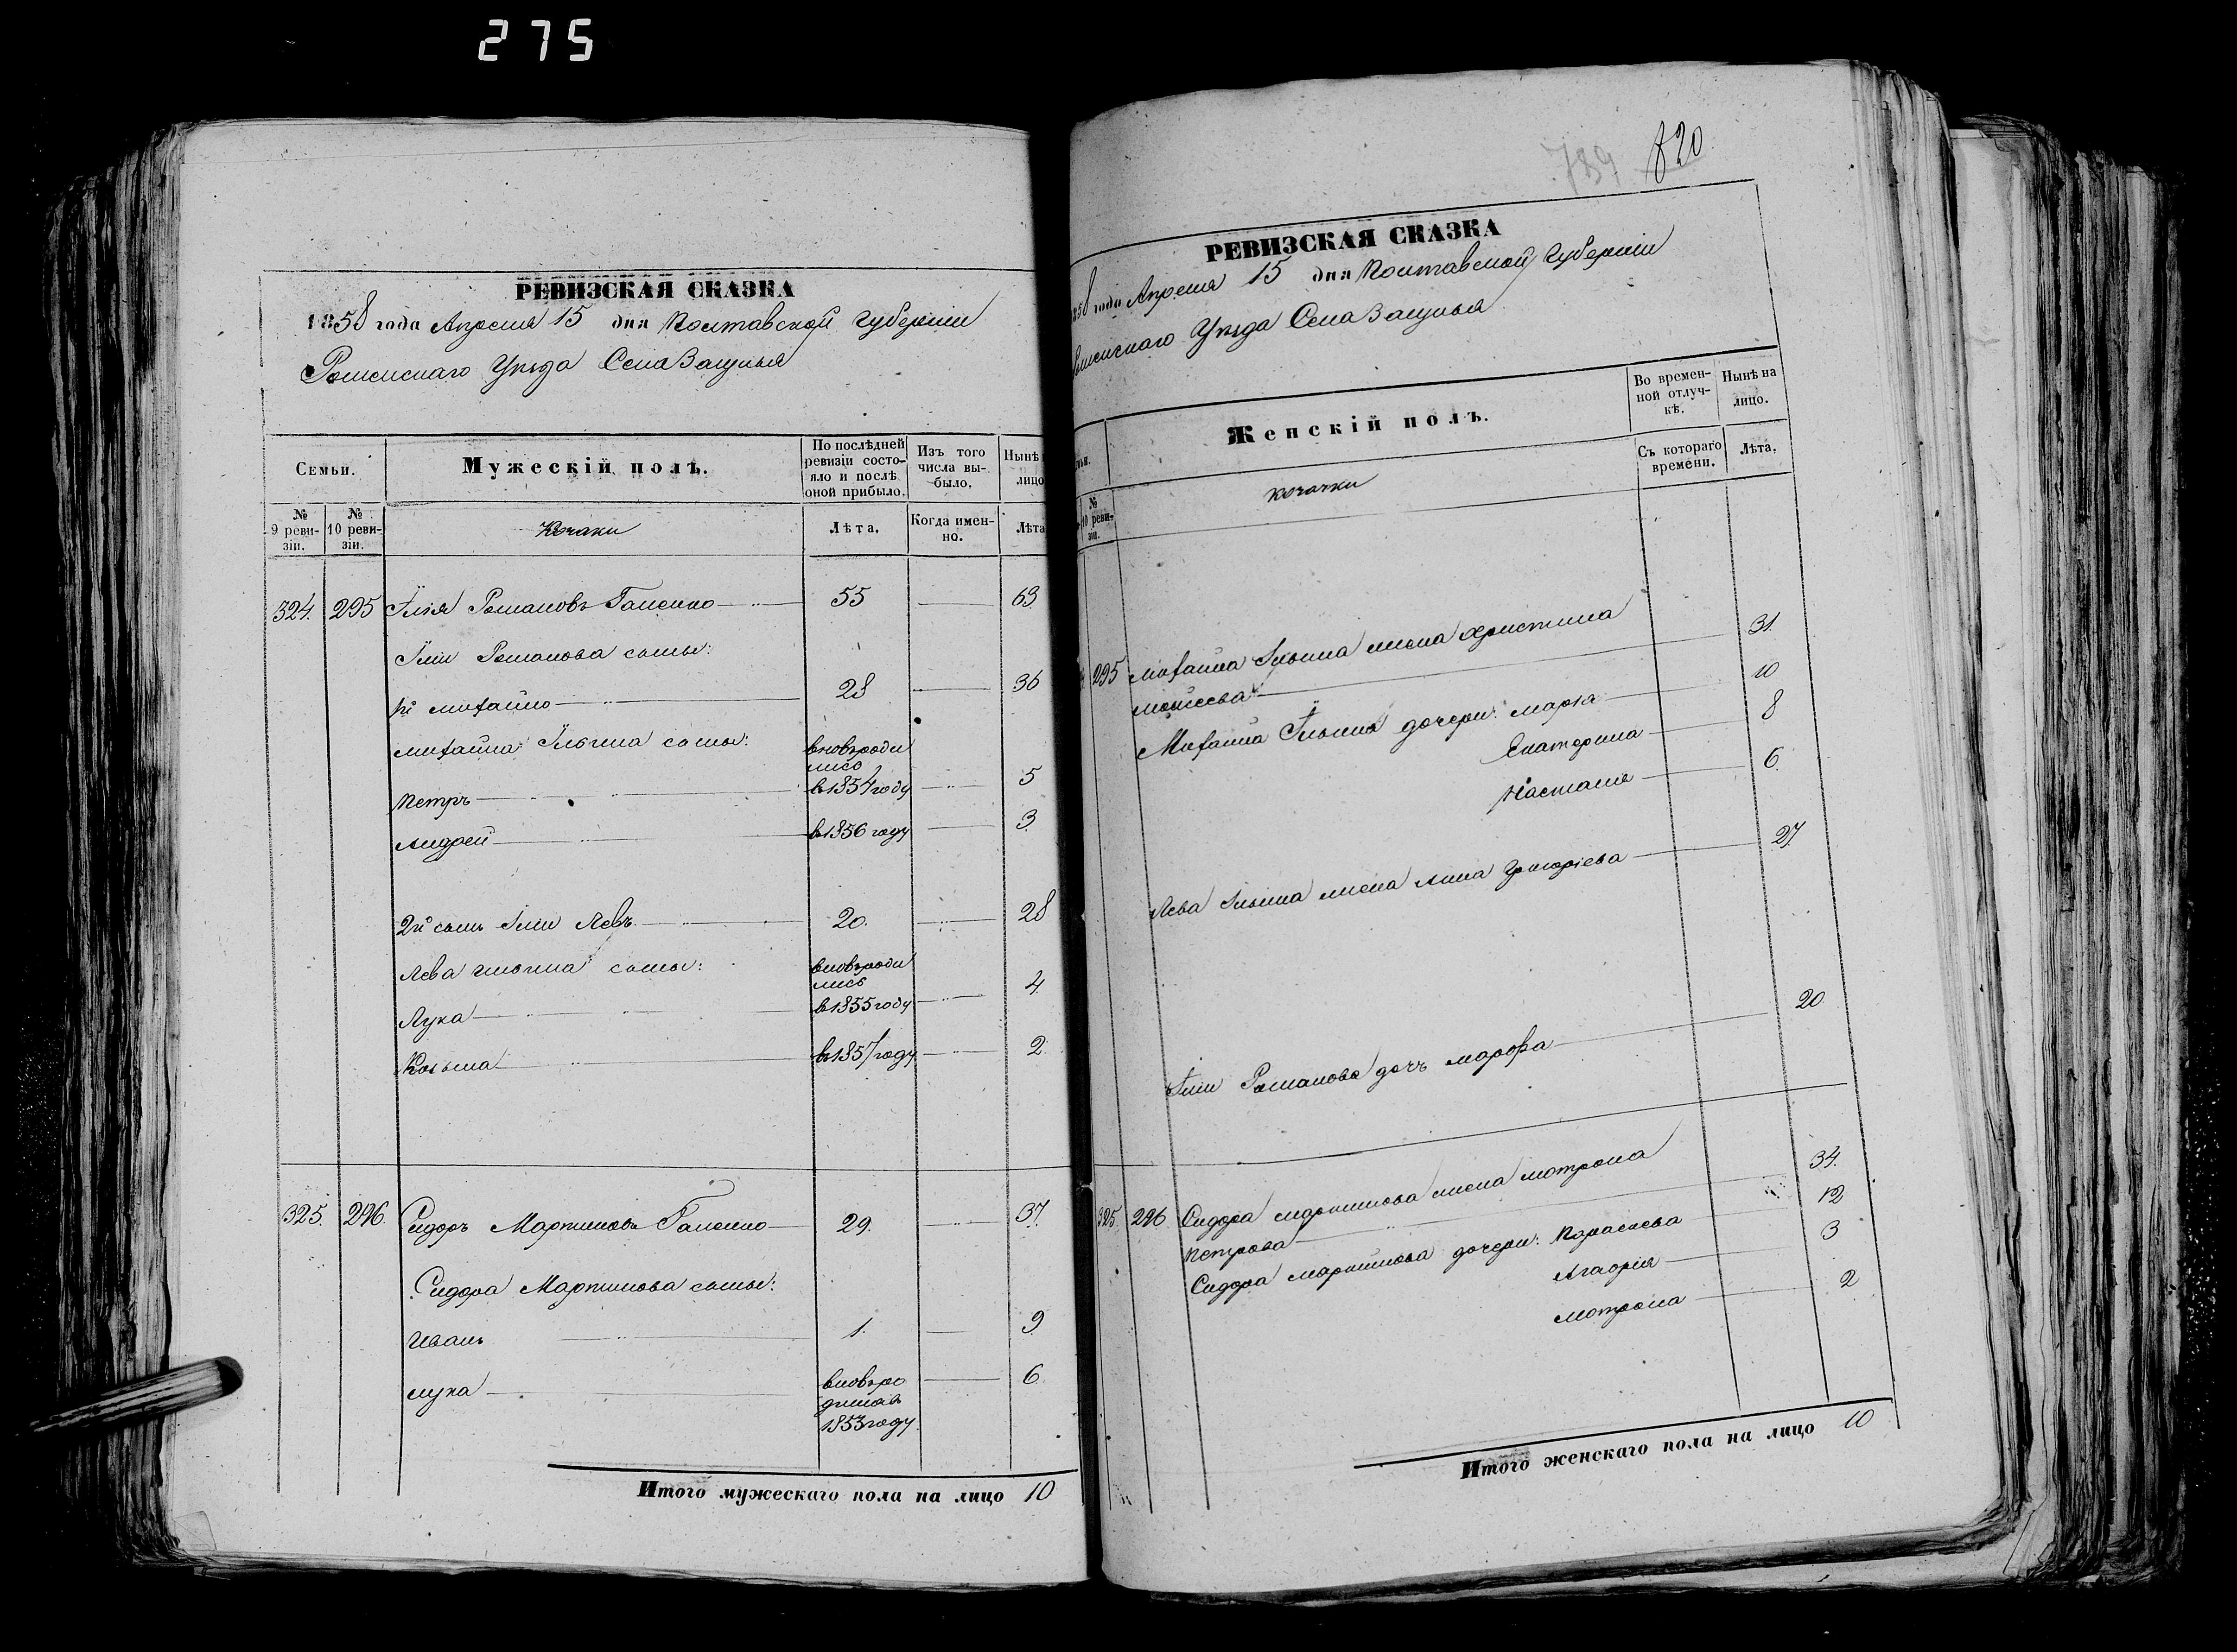 275
РЕВИЗСКАЯ СКАЗКА
1858 года Апреля 15 дня Полтавской Губерніи
Роменскаго Уѣзда Села Защитья
Семьи.
Мужескій полъ.
По послѣдней ревизіи состояло и послѣ оной прибыло.
Изъ того числа выбыло.
Нынѣ лицо
№ 9 ревизіи.
№ 10 ревизіи.
Козаки
Лѣта.
Когда именно.
Лѣта
324. 295 Илія Романовъ Галенко 55 63
Иліи Романова сыны:
1й михайло 28 36
михайла Ильина сыны: вновь роди
лись
петръ в 1854 году 5
Андрей в 1856 году 3
2й сынъ Иліи Левъ 20. 28
Лева ильина сыны: вновь роди
лись
Лука в 1855 году 4
Козьма в 1857 году 2
325. 296. Сидоръ Мартиновъ Галенко 29. 37
Сидора Мартинова сыны:
Иванъ 1. 9
лука вновь ро 6
дился в
1853 году
Итого мужескаго пола на лицо 10
789 820
РЕВИЗСКАЯ СКАЗКА
858 года Апреля 15 дня Полтавской Губерніи
оменскаго Уѣзда Села Защитья
Женскій полъ.
Во временной отлучкѣ.
Нынѣ на лицо.
№ 10 ревизіи.
козачки
Съ котораго времени.
Лѣта.
295 михайла Ильина жена христина
моисеева 31.
Михайла Ильина дочери: марія 10
Екатерина 8
Настасія 6
Лева Ильина жена Анна Григоріева 27
Иліи Романова дочь марфа 20
325. 296 Сидора мартинова жена мотрона
петрова 34.
Сидора мартинова дочери: Параскева 12
Агафія 3
мотрона 2
Итого женскаго пола на лицо 10